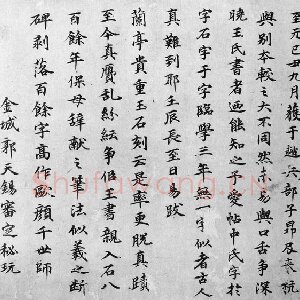 至元己丑九月獲于越六部子昂及
與別本較之大不同然亦易與口舌爭深
曉王氏書者迺能知之予愛帖中氏字於
字石字于字臨學三年無一字似者古人
真難到耶壬辰長至日跋
蘭亭貴重玉石刻云是率更脫真蹟
至今真贗亂紛紜爭似王書親入石八
百餘年保母辭獻之筆法似羲之斷
碑剥落百餘字高作歐顏千世師
金城郭天錫審定秘玩
Shufawang.CN